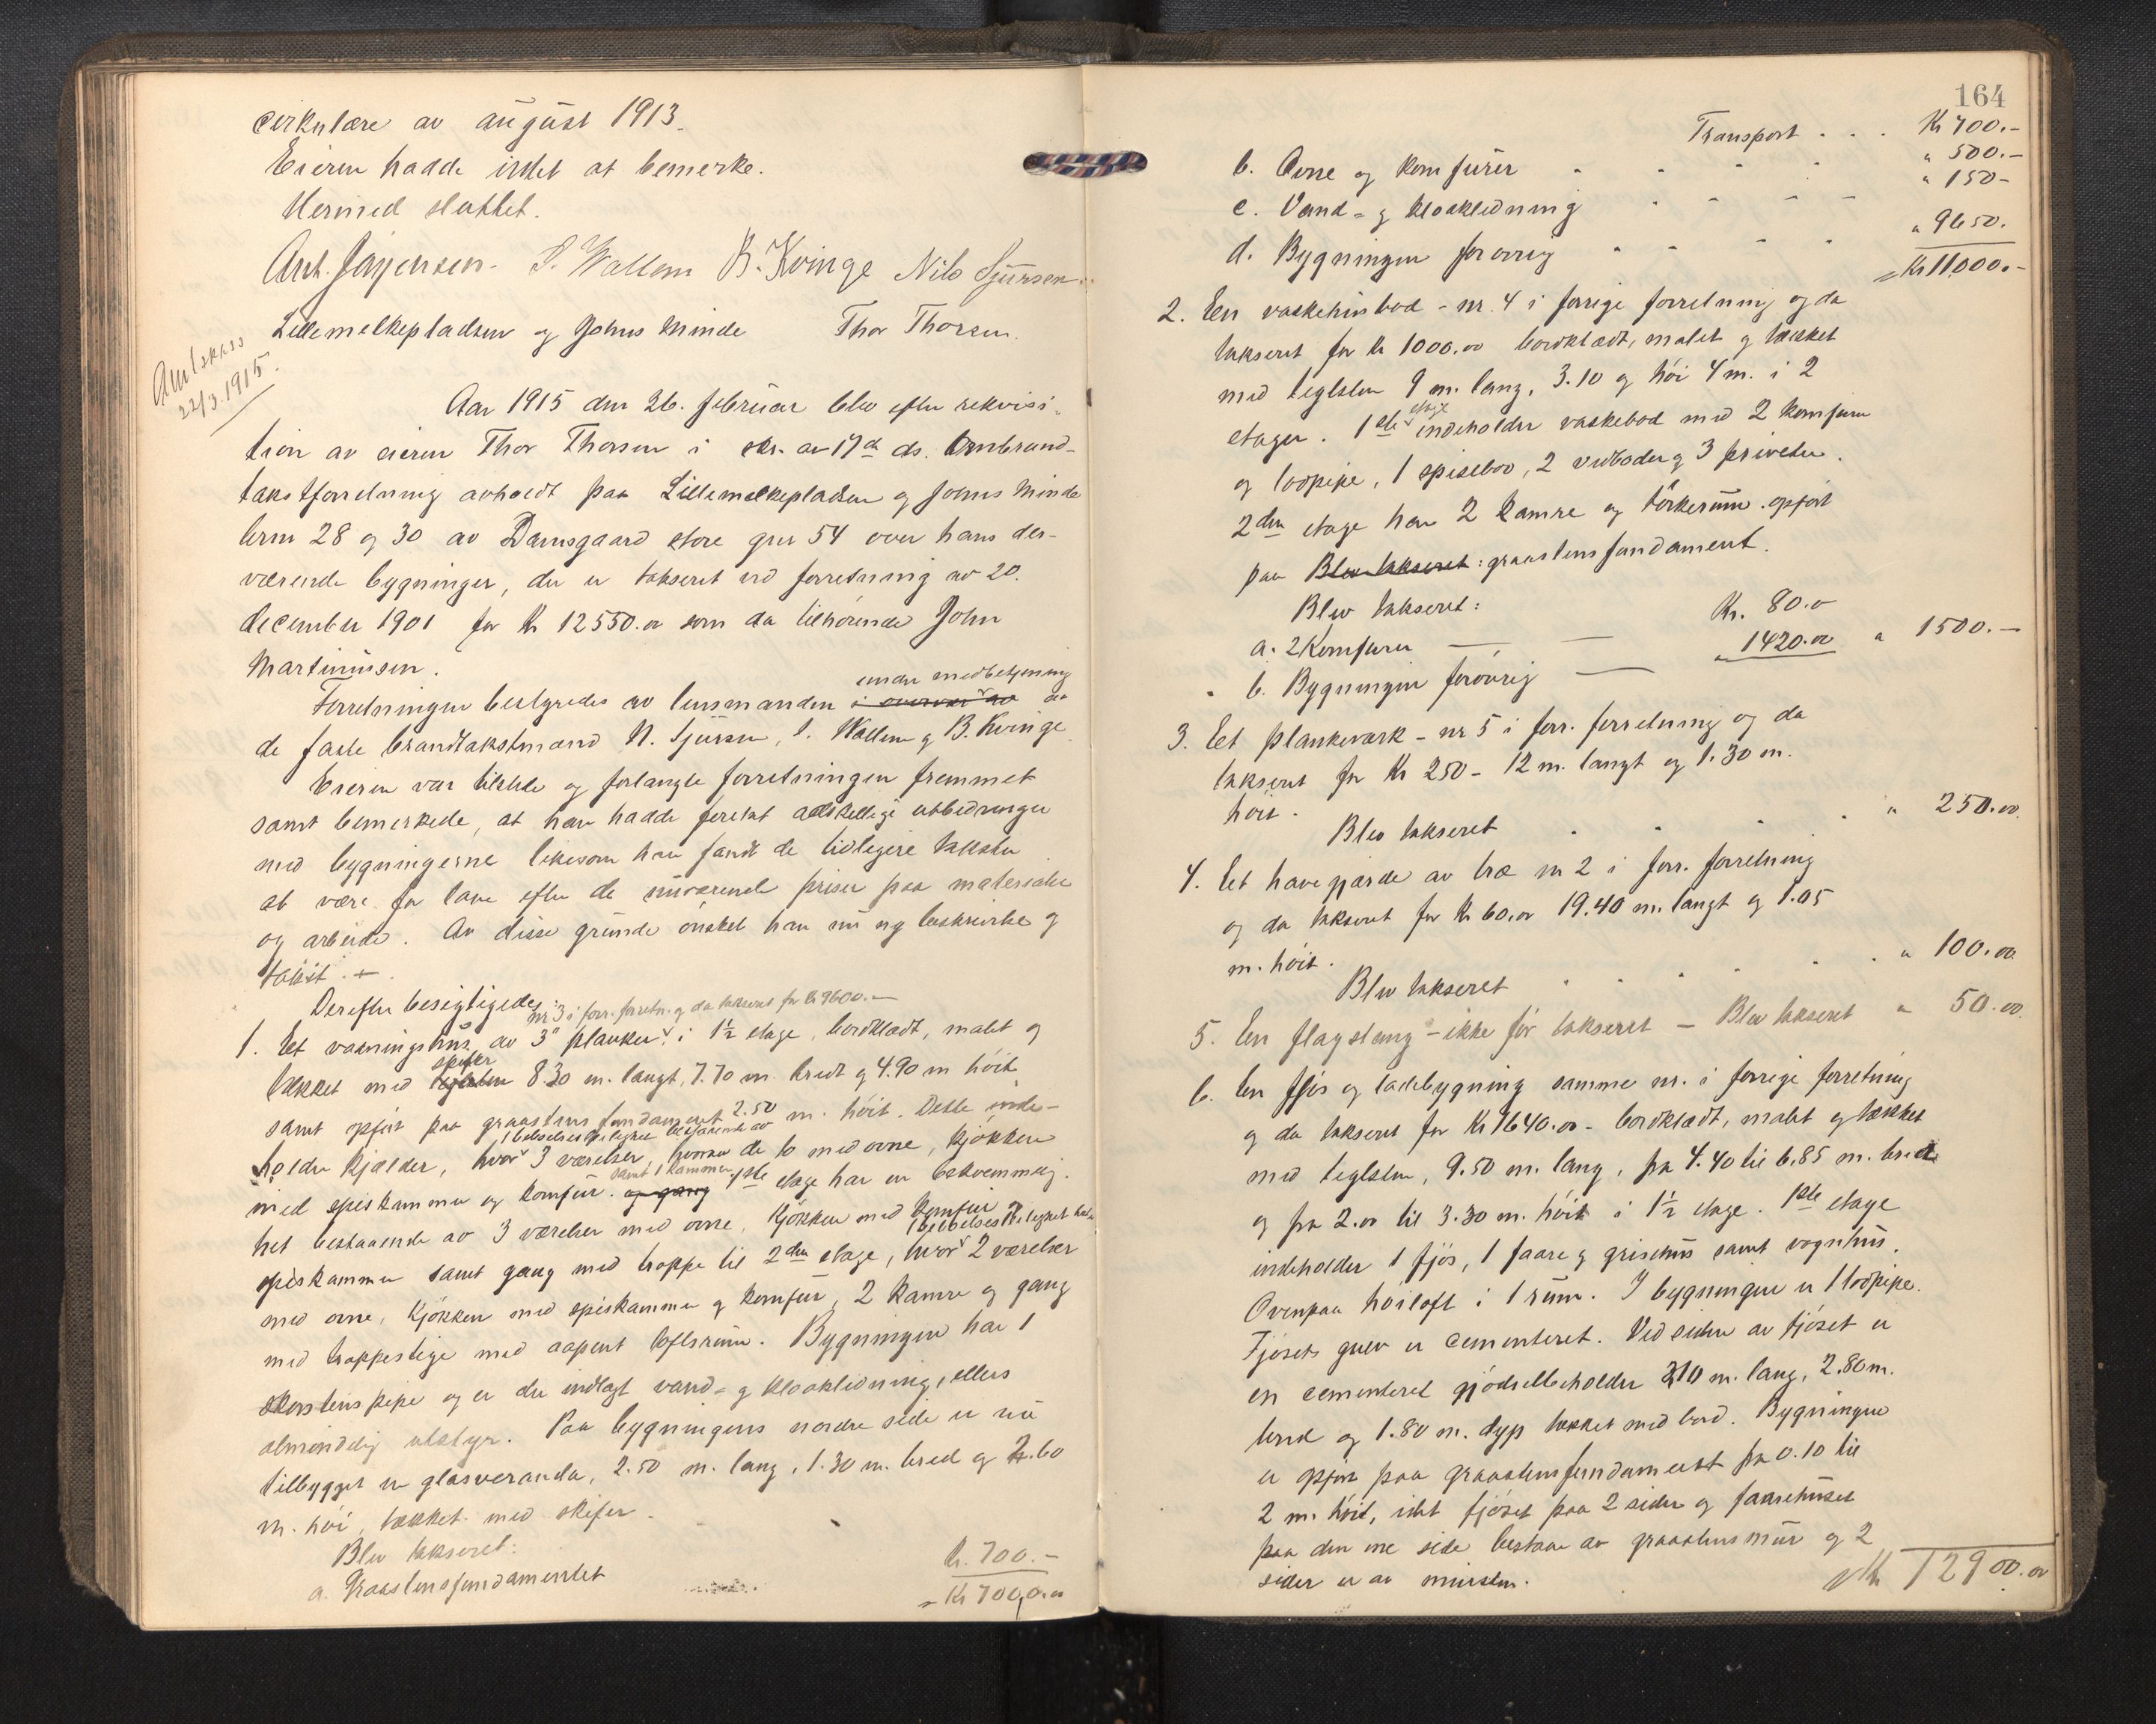 cirkulære av august 1913.
Eieren hadde intet at bemerke.
Hermed sluttet.
Ant. Jørgensen. S. Wallem B. Kvinge Nils Sjursen
Lillemelkepladsen og Johns Minde Thor Thorsen.
22/3. 1915.
Aar 1915 den 26. februar blev efter rekvisi-
tion av eieren Thor Thorsen i skr. av 17de ds. Ombrand-
takstforretning avholdt paa Lillemelkepladsen og Johns Minde
brnr 28 og 30 av Damsgaard store gnr 54 over hans der-
værende bygninger, der er takseret ved forretning av 20.
december 1901 for kr 12550.00 som da tilhørende John
Martinussen.
Forretningen bestyredes av lensmanden i overvær av under medbetjening av
de faste brandtakstmænd N. Sjursen, S. Wallem og B. Kvinge
Eieren var tilstede og forlangte forretningen fremmet
samt bemerkede, at han hadde foretat adskellige utbedringer
med bygningerne likesom han fandt de tidligere takster
at være for lave efter de nuværende priser paa materialer
og arbeide. Av disse grunde ønsket han nu ny beskrivelse og
takst. +.
Derefter besigtigedes:
nr 3 i forr. forretn. og da takseret for kr 9600.—
1. Et vaaningshus av 3" planker i 1½ etage, bordklædt, malet og
tækket med teglsten skifer 8.30 m. langt, 7.70 m. bredt og 4.90 m høit
samt opført paa graastens fundament 2.50 m. høit. Dette inde-
holder kjælder, hvor 1 beboelsesleilighet bestaaende av 3 værelser, hvorav de to med ovne, kjøkken
med spiskammer og komfur. og gang samt 1 kammer 1ste etage har en bekvemmelig-
het bestaaende av 3 værelser med ovne, kjøkken med komfur
spiskammer samt gang med trappe til 2den etage, hvor 1 beboelsesleilighet 2 værelser
med ovne, kjøkken med spiskammer og komfur, 2 kamre og gang
med trappestige med aapent loftsrum. Bygningen har 1
skorstenspipe og er der indlagt vand- og kloakledning, ellers
almindelig utstyr. Paa bygningens nordre side er nu
tilbygget en glasveranda, 2.50 m. lang, 1.30 m. bred og 2.60
m. høi, tækket med skifer.
Blev takseret:
a. Graastensfundamentet kr. 700.—
= Kr 700,00
164
Transport . . . Kr 700.—
b. Ovne og komfurer „ 500.—
c. Vand- og kloakledning „ 150—
d. Bygningen forøvrig „ 9650.
= Kr 11,000.—
2. En vaskehusbod - nr. 4 i forrige forretning og da
takseret for kr 1000.00 bordklædt, malet og tækket
med teglsten 9 m. lang, 3.10 og høi 4 m. i 2
etager. 1ste etage indeholder vaskebod med 2 komfurer
og loopipe, 1 spisebod, 2 vedboder og 3 priveter.
2den etage har 2 kamre og tørkerum. opført
paa Blev takseret: graastensfundament.
Blev takseret:
a. 2 Komfurer — — Kr. 80.00
b. Bygningen forøvrig — „ 1420.00 „ 1500.—
3. Et plankeværk - nr 5 i forr. forretning og da
takseret for kr 250 - 12 m. langt og 1.30 m.
høit.
Blev takseret „ 250.00.
4. Et havegjærde av træ nr 2 i forr. forretning
og da takseret for kr 60.00 19.40 m. langt og 1.05
m. høit.
Blev takseret „ 100.00
5. En flagstang - ikke før takseret — Blev takseret „ 50.00.
6. En fjøs og ladebygning samme nr. i forrige forretning
og da takseret for kr 1640.00 - bordklædt, malet og tækket
med teglsten, 9.50 m. lang, fra 4.40 til 6.85 m. bred
og fra 2.00 til 3.30 m. høit i 1½ etage. 1ste etage
indeholder 1 fjøs, 1 faare og grisehus samt vognhus.
Ovenpaa høiloft i 1 rum. I bygningen er 1 loopipe.
Fjøsets gulv er cementeret. Ved siden av fjøset er
en cementeret gjødselbeholder 310 m. lang, 2.80 m.
bred og 1.80 m. dyp tækket med bord. Bygningen
er opført paa graastensfundament fra 0.10 til
2 m. høit, idet fjøset paa 2 sider og faarehuset
paa den ene side bestaar av graastensmur og 2
sider er av mursten. Kr 12900.00